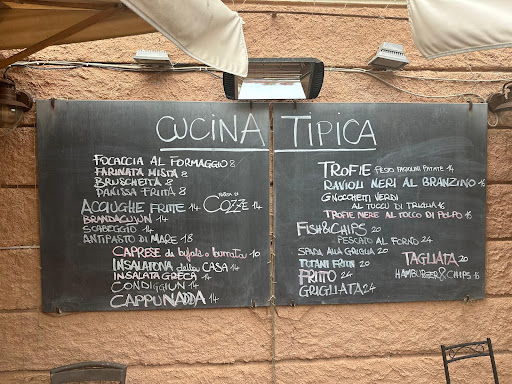 CUCINA TIPICA
FOCACCIA AL FORMAGGIO 8
FARINATA MISTA 8
BRUSCHETTA 8
PANISSA FRITTA 8
ACCIUGHE FRITTE 14
COZZE 14
BRANDACUJUN 14
SCABEGGIO 14
ANTIPASTO DI MARE 18
CAPRESE di bufala o burrata 10
INSALATONA della CASA 14
INSALATA GRECA 14
CONDIGGIUN 14
CAPPUNADDA 14
TROFIE PESTO FAGIOLINI PATATE 14
RAVIOLI NERI AL BRANZINO 16
GNOCCHETTI VERDI
AL TUCCU DI TRIGLIA 16
TROFIE NERE AL TOCCO DI POLPO 16
FISH&CHIPS 20
PESCATO AL FORNO 24
SPADA ALLA GRIGLIA 20
TOTANI FRITTI 20
FRITTO 24
GRIGLIATA 24
TAGLIATA 20
HAMBURGER&CHIPS 15